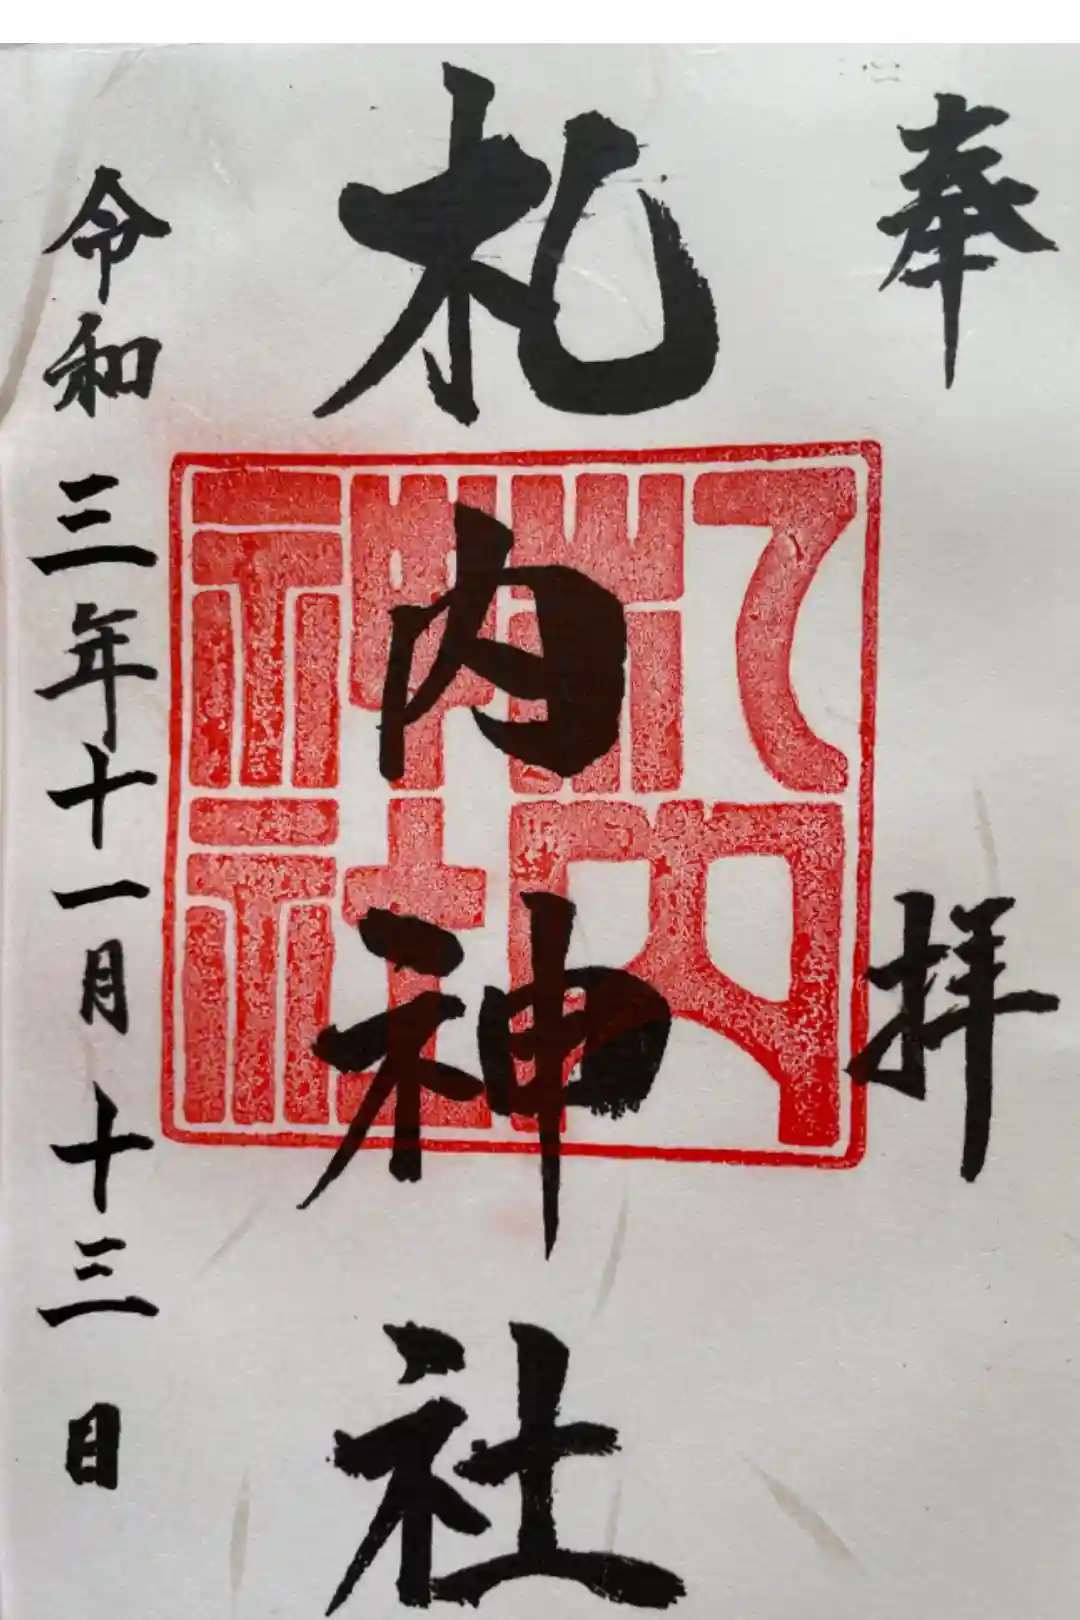 奉拝
札内神社
令和三年十一月十三日